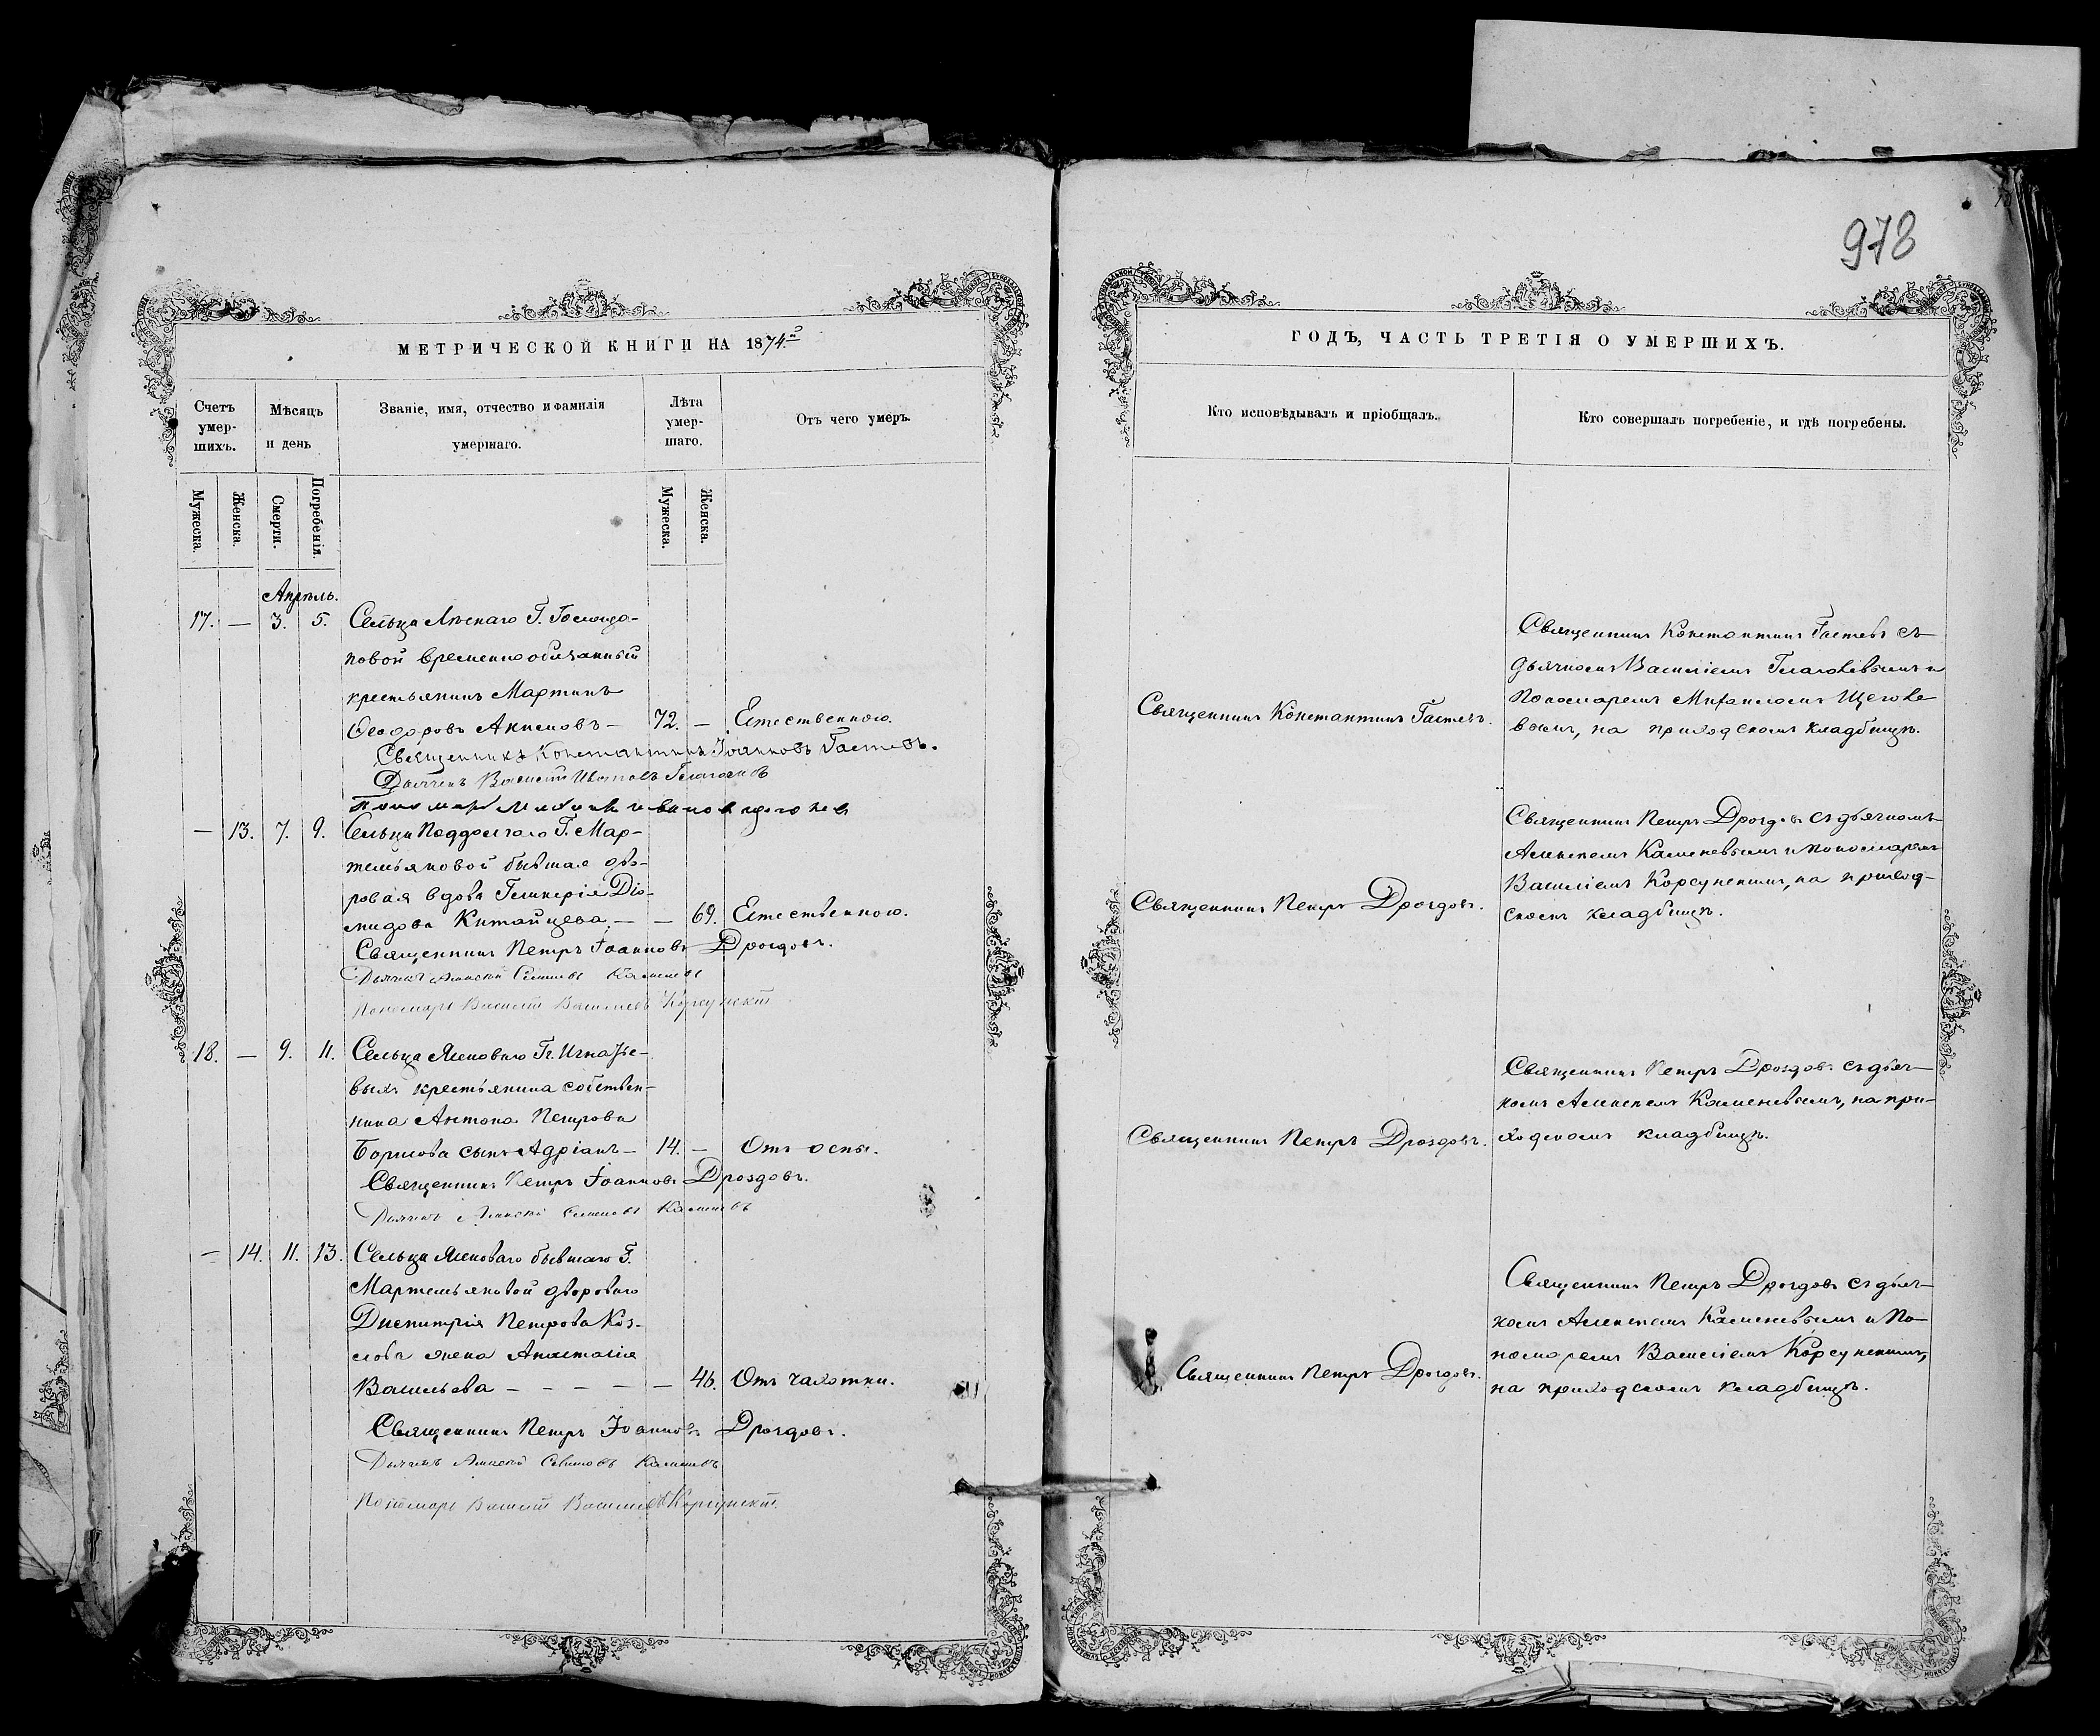 978
МЕТРИЧЕСКОЙ КНИГИ НА 1874й
ГОДЪ, ЧАСТЬ ТРЕТІЯ О УМЕРШИХЪ.
Счетъ умер-
шихъ.
Мѣсяцъ
и день
Званіе, имя, отчество и фамилія
умершаго.
Лѣта
умер-
шаго.
Отъ чего умеръ.
Кто исповѣдывалъ и пріобщалъ.
Кто совершалъ погребеніе, и гдѣ погребены.
Мужеска.
Женска.
Смерти.
Погребенія.
Мужеска.
Женска.
Апрѣль.
17. — 3. 5. Сельца
новой временнообязанный
крестьянинъ Мартинъ
Ѳеодоровъ Акимовъ — 72. — Естественною.
Священникъ Константинъ Іоанновъ Гастевъ.
Дьячекъ Василій Ивановъ
Пономарь
Священникъ Константинъ Гастевъ.
Священникъ Константинъ Гастевъ съ
дьячкомъ Василіемъ
Пономаремъ Михаиломъ
вымъ, на приходскомъ кладбищѣ.
— 13. 7. 9. Сельца Г. Мар-
темьяновой бывшая дво-
ровая вдова Гликерія Діо-
мидова Китайцева — — 69. Естественною.
Священникъ Петръ Іоанновъ Дроздовъ.
Дьячекъ Алексѣй Каменевъ
Пономарь Василій Васильевъ Корсунскій
Священникъ Петръ Дроздовъ.
Священникъ Петръ Дроздовъ съ дьячкомъ
Алексѣемъ Каменевымъ и пономаремъ
Василіемъ Корсунскимъ, на приход-
скомъ кладбищѣ.
18. — 9. 11. Сельца Гг. Игнатье-
выхъ крестьянина собствен-
ника Антона Петрова
Борисова сынъ Адріанъ — 14. — Отъ оспы.
Священникъ Петръ Іоанновъ Дроздовъ.
Дьячекъ Алексѣй Каменевъ
Священникъ Петръ Дроздовъ.
Священникъ Петръ Дроздовъ съ дьяч-
комъ Алексѣемъ Каменевымъ, на при-
ходскомъ кладбищѣ.
— 14. 11. 13. Сельца бывшаго Г.
Мартемьяновой двороваго
Димитрія Петрова Коз-
лова жена Анастасія
Васильева — — — — — 46. Отъ чахотки.
Священникъ Петръ Іоанновъ Дроздовъ.
Дьячекъ Алексѣй Каменевъ
Пономарь Василій Васильевъ Корсунскій.
Священникъ Петръ Дроздовъ.
Священникъ Петръ Дроздовъ съ дьяч-
комъ Алексѣемъ Каменевымъ и По-
номаремъ Василіемъ Корсунскимъ,
на приходскомъ кладбищѣ.